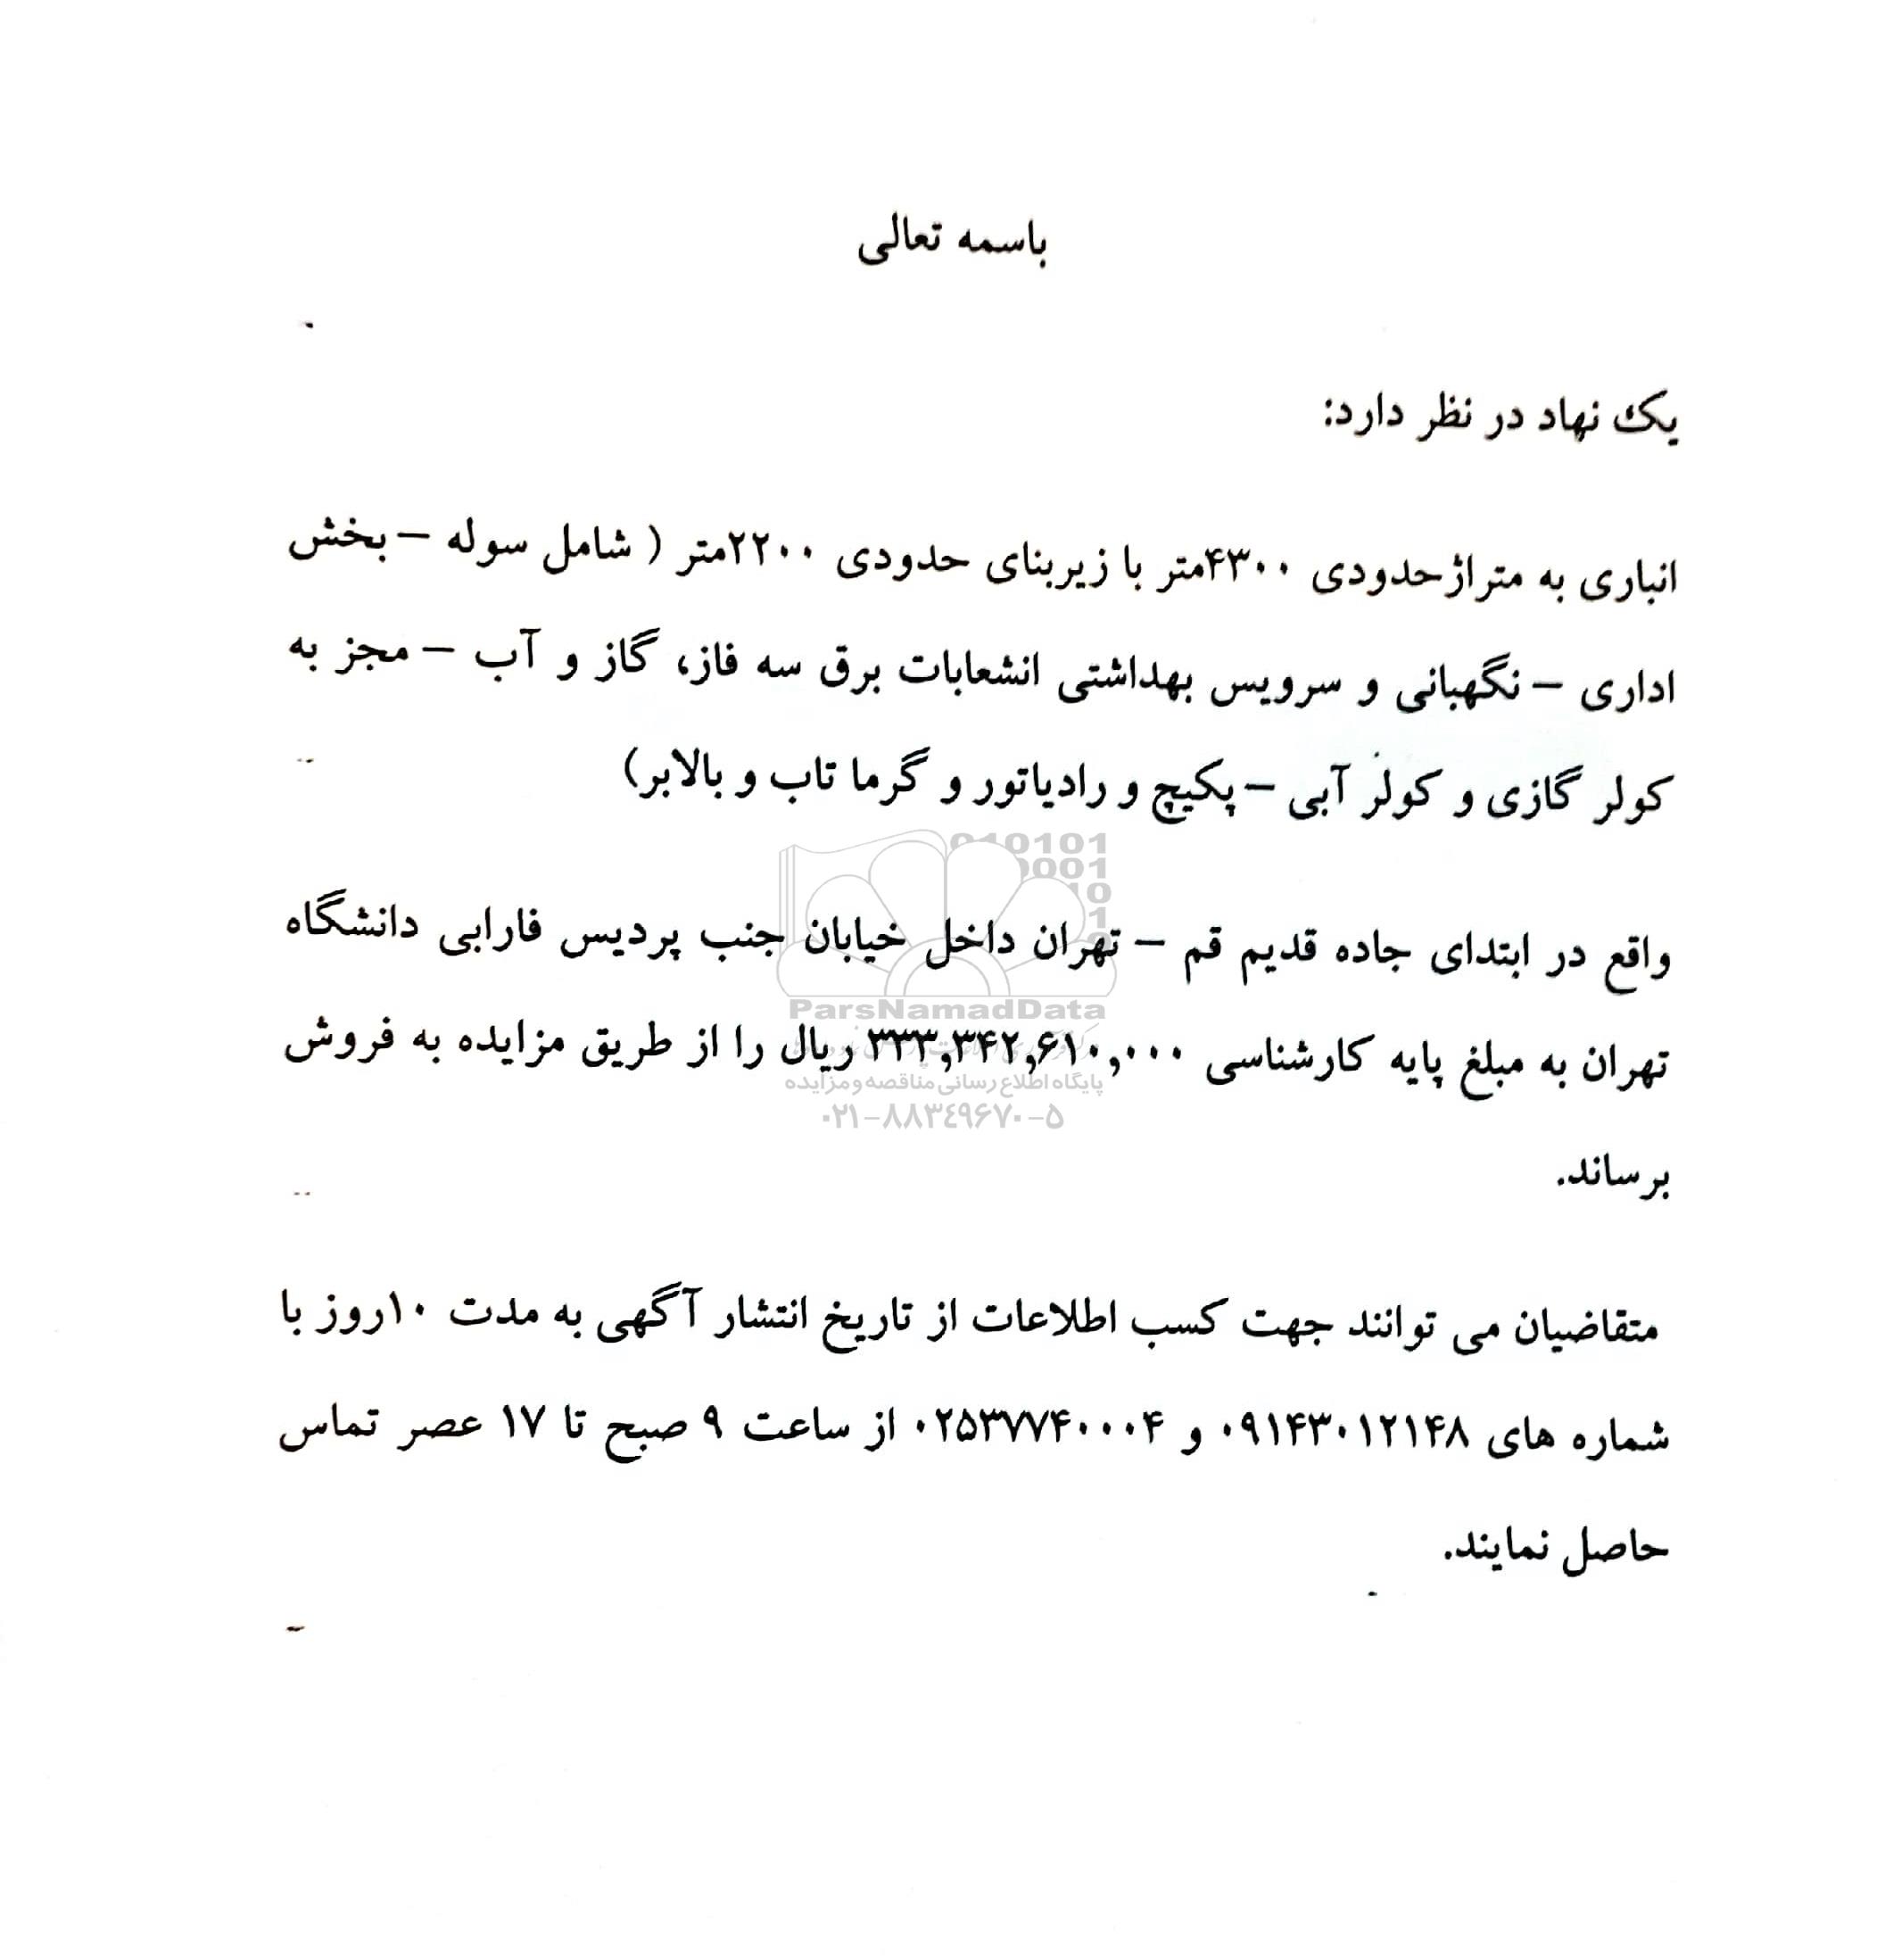 باسمه تعالی
یک نهاد در نظر دارد:
انباری به متراژحدودی ۴۳۰۰متر با زیربنای حدودی ۲۲۰۰متر ( شامل سوله – بخش
اداری – نگهبانی و سرویس بهداشتی انشعابات برق سه فاز، گاز و آب – مجز به
کولر گازی و کولر آبی – پکیچ و رادیاتور و گرما تاب و بالابر)
010101
0001
10
1
واقع در ابتدای جاده قدیم قم – تهران داخل خیابان جنب پردیس فارابی دانشگاه
ParsNamadData
تهران به مبلغ پایه کارشناسی ۳۳۳,۳۴۲,۶۱۰,۰۰۰ ریال را از طریق مزایده به فروش
پایگاه اطلاع رسانی مناقصه و مزایده
۰۲۱-۸۸۳۴۹۶۷۰-۵
برساند.
متقاضیان می توانند جهت کسب اطلاعات از تاریخ انتشار آگهی به مدت ۱۰روز با
شماره های ۰۹۱۴۳۰۱۲۱۴۸ و ۰۲۵۳۷۷۴۰۰۰۴ از ساعت ۹ صبح تا ۱۷ عصر تماس
حاصل نمایند.